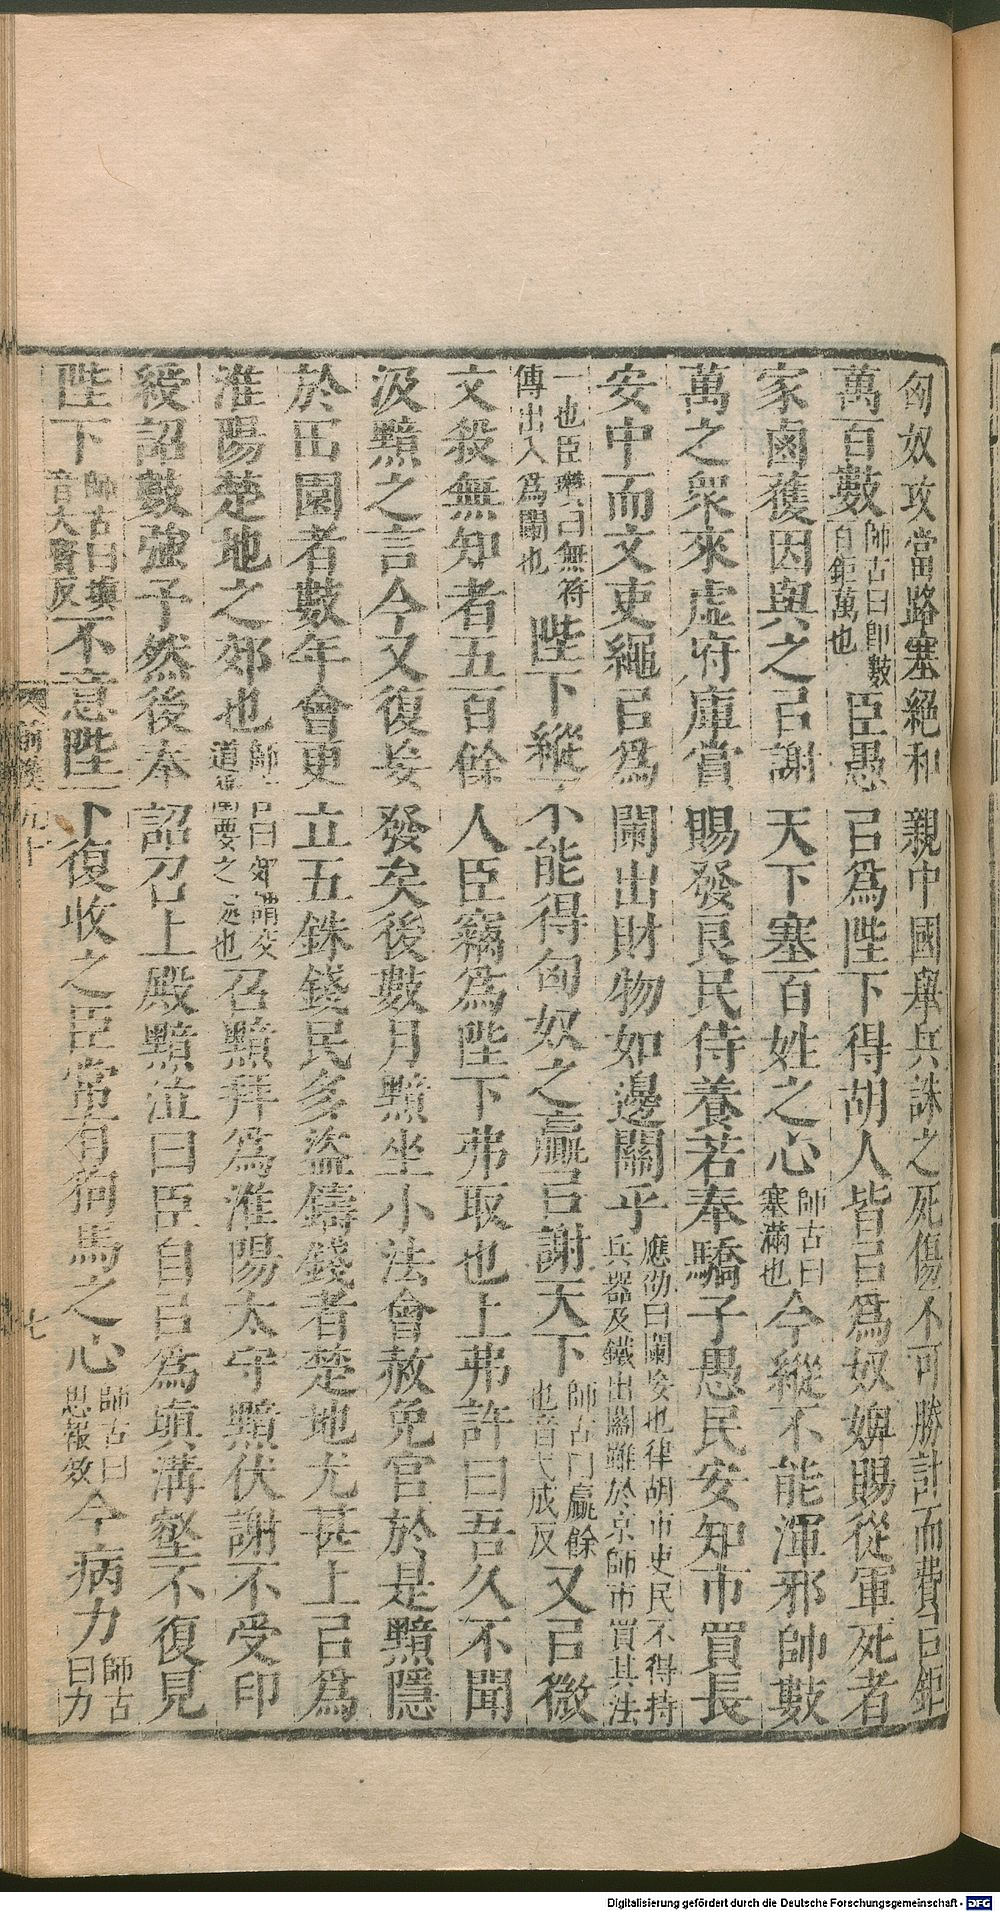 匈奴攻當路塞絕和親中國舉兵誅之死傷不可勝計而費㠯鉅
萬百數師古曰卽數自鉅萬也臣愚㠯爲陛下得胡人皆㠯爲奴婢賜從軍死者
家鹵獲因與之㠯謝天下塞百姓之心師古曰塞滿也今縱不能渾邪帥數
萬之衆來虛府庫賞賜發良民侍養若奉驕子愚民安知市買長
安中而文吏繩㠯爲闌出財物如邊關乎應劭曰闌妄也律胡市吏民不得持兵器及鐵出關雖於京師市買其法
一也臣瓚曰無符傳出入爲闌也陛下縱不能得匈奴之贏㠯謝天下師古曰贏餘也音弋成反又㠯微
文殺無知者五百餘人臣竊爲陛下弗取也上弗許曰吾久不聞
汲黯之言今又復妄發矣後數月黯坐小法會赦免官於是黯隱
於田園者數年會更立五銖錢民多盜鑄錢者楚地尤甚上㠯爲
淮陽楚地之郊也師古曰郊謂交道衝要之處也召黯拜爲淮陽太守黯伏謝不受印
綬詔數強予然後奉詔召上殿黯泣曰臣自㠯爲塡溝壑不復見
陛下師古曰塡音大賢反不意陛下復收之臣常有狗馬之心師古曰思報效今病力師古曰力
前漢九十
七
Digitalisierung gefördert durch die Deutsche Forschungsgemeinschaft - DFG